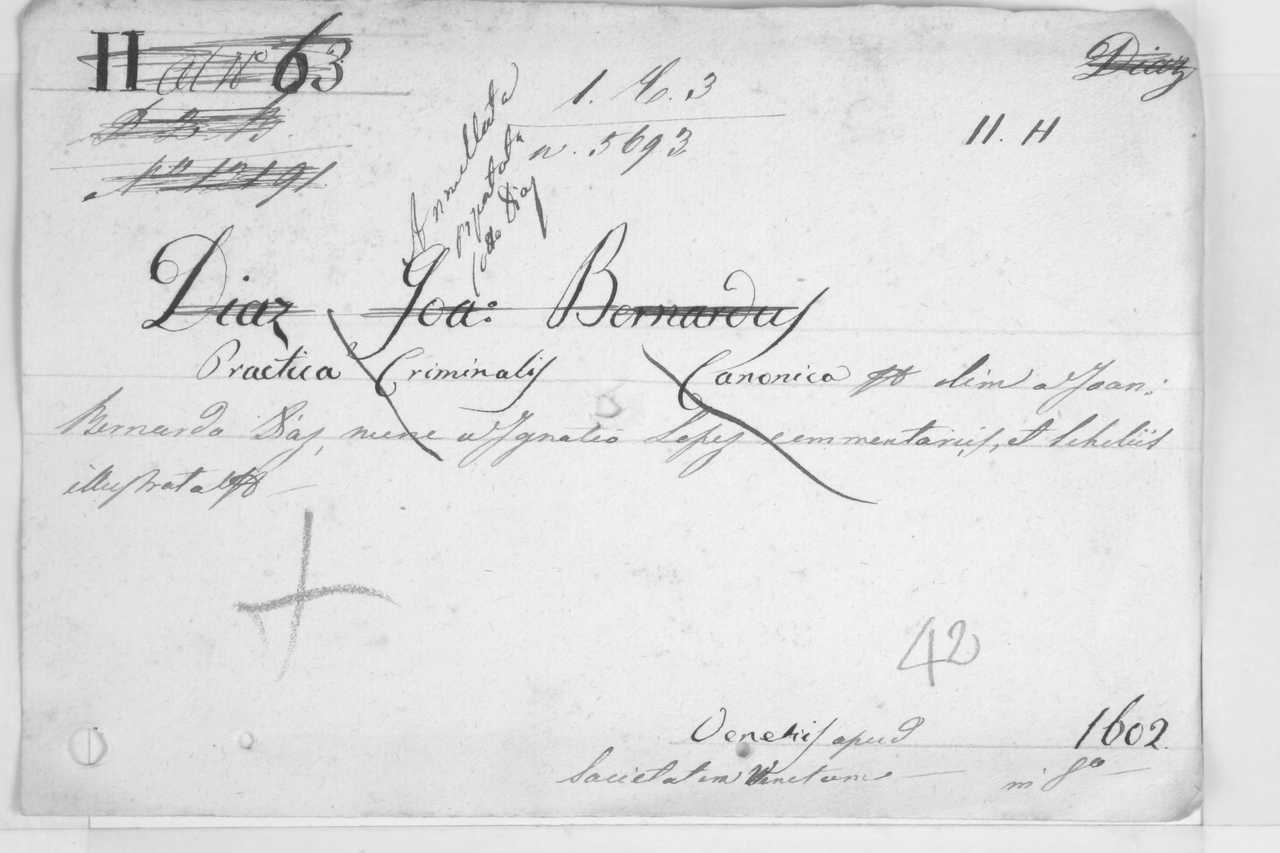 H al N° 63
Diaz
1. H. 3
n. 5693
11. H
N° 13191
Annullata
riportata
sotto Diaz
Diaz Joa: Bernardus
Practica Criminalis Canonica olim a Joan:
Bernardo Diaz, nunc a Ignatio Lopez commentariis, et Scholiis
illustrata
42
Venetiis apud 1602
Societatem Venetam in 8°